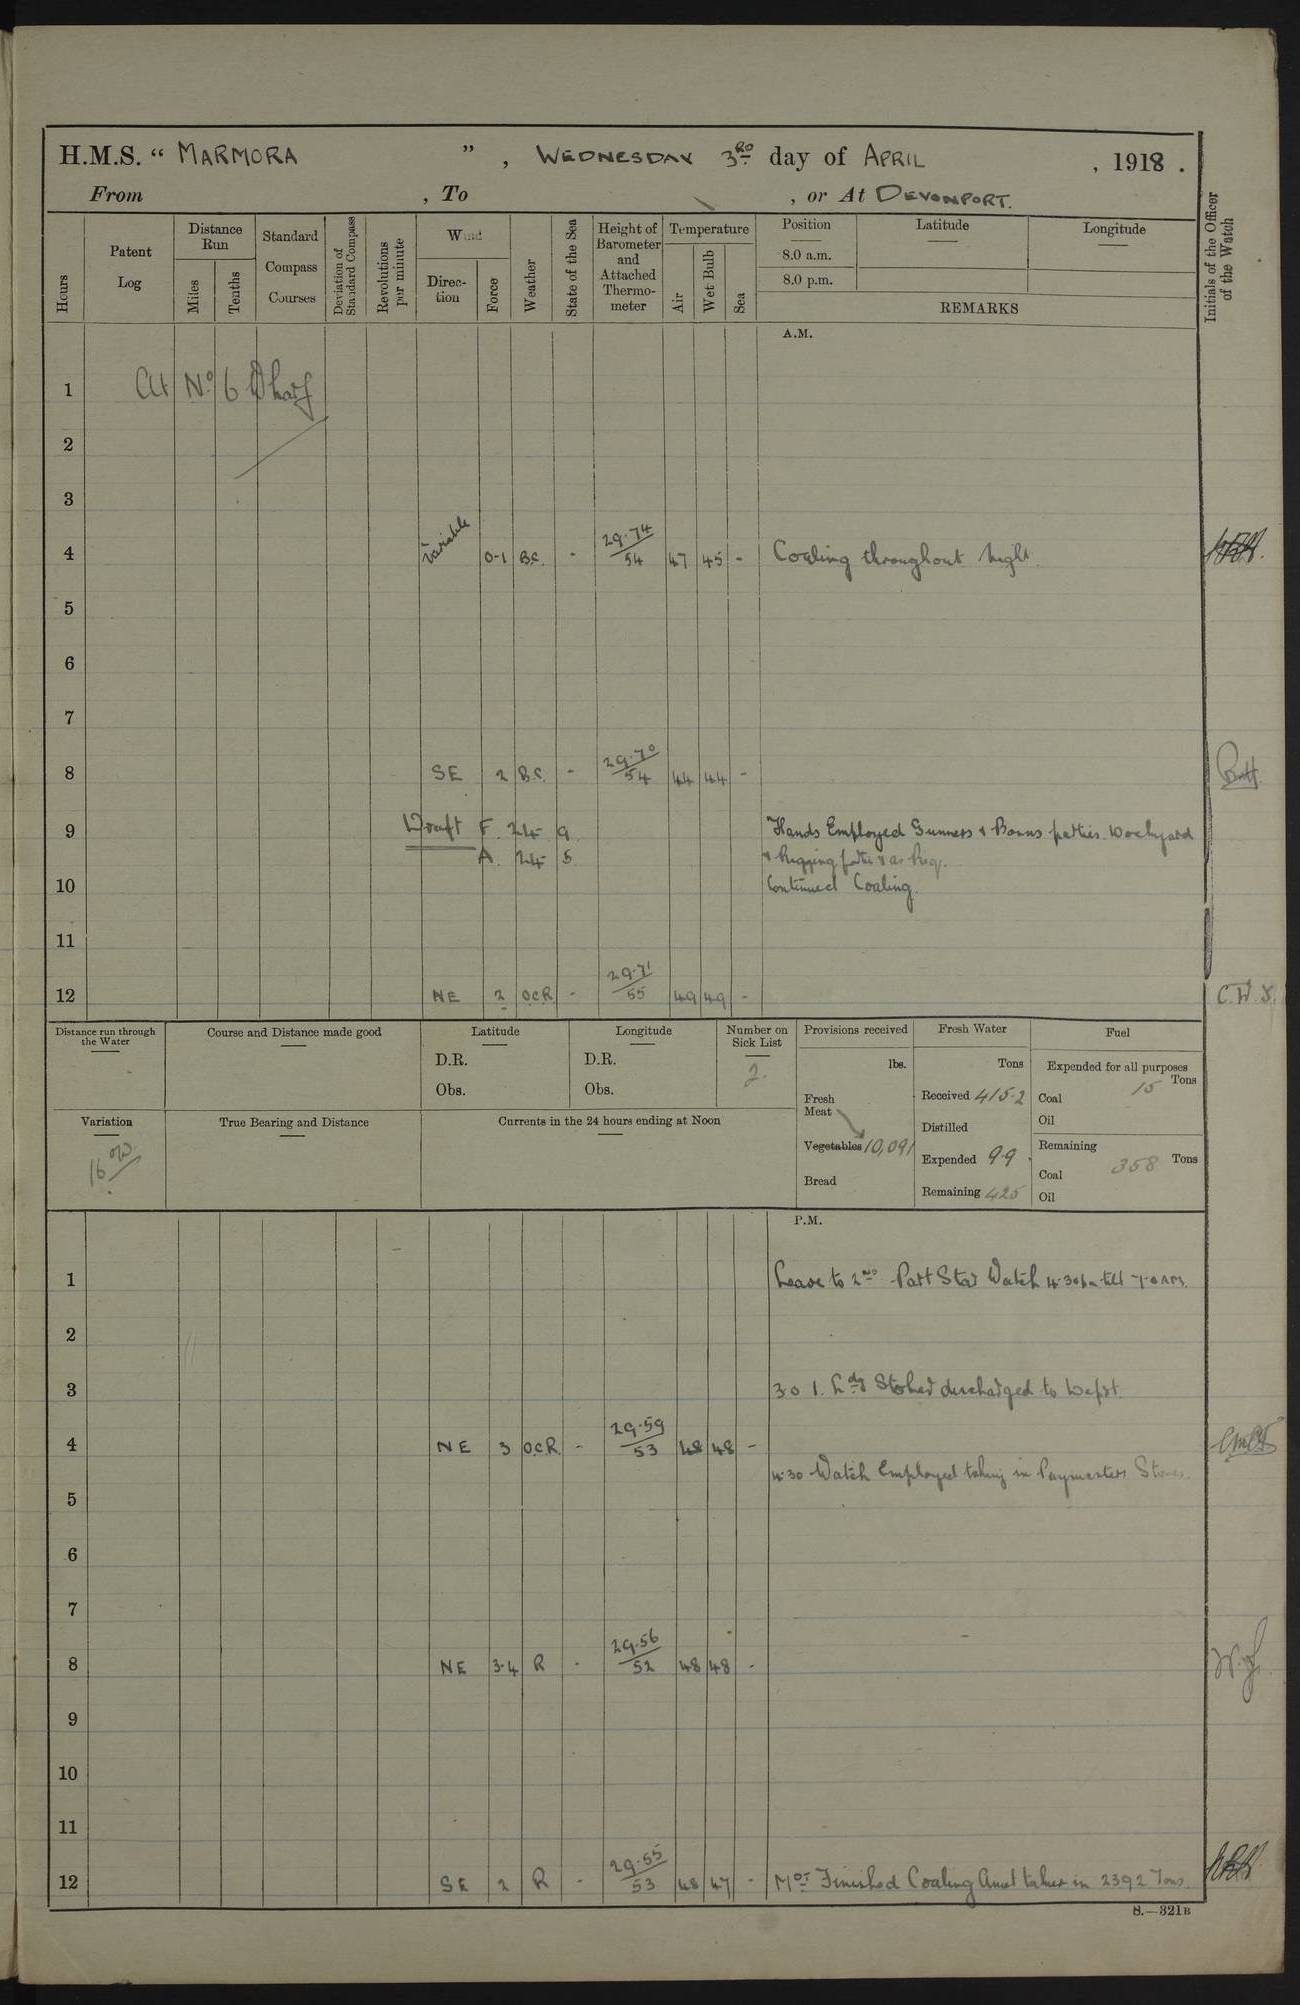 H.M.S. “ MARMORA ” , WEDNESDAY 3RD day of APRIL , 1918 .
From , To , or At DEVONPORT.
Hours
Patent Log
Distance Run
Miles
Tenths
Standard Compass Courses
Deviation of Standard Compass
Revolutions per minute
Wind
Direction
Force
Weather
State of the Sea
Height of Barometer and Attached Thermometer
Temperature
Air
Wet Bulb
Sea
Position
8.0 a.m.
8.0 p.m.
Latitude
Longitude
REMARKS
Initials of the Officer of the Watch
A.M.
1 At No 6 Wharf
2
3
4 Variable 0-1 B.C. - 29.74/54 47 45 - Coaling throughout night.
5
6
7
8 SE 2 B.C. - 29.70/54 44 44 -
9 Draft F. 24 9 Hands Employed Gunners & Bosuns parties. Dockyard
A. 24 5 & Rigging parties & as Req.
10 Continued Coaling.
11
12 NE 2 O.C.R. - 29.71/55 49 49 - C.W.S.
Distance run through the Water
Course and Distance made good
Latitude
D.R.
Obs.
Longitude
D.R.
Obs.
Number on Sick List
2.
Provisions received
lbs.
Fresh Meat
Vegetables 10,091
Bread
Fresh Water
Tons
Received 415.2
Distilled
Expended 99
Remaining 425
Fuel
Expended for all purposes
Tons
Coal 15
Oil
Remaining
Coal 358 Tons
Oil
Variation
16 W.
True Bearing and Distance
Currents in the 24 hours ending at Noon
P.M.
1 Leave to 2ND Part Star Watch 4.30pm till 7.0 AM.
2
3 3.0 1. Ldg Stoker discharged to Depot.
4 NE 3 O.C.R. - 29.59/53 48 48 -
4.30 Watch Employed taking in Paymasters Stores.
5
6
7
8 NE 3-4 R - 29.56/52 48 48 -
9
10
11
12 SE 2 R - 29.55/53 48 47 - Finished Coaling Amt taken in 2392 Tons.
S.—321B